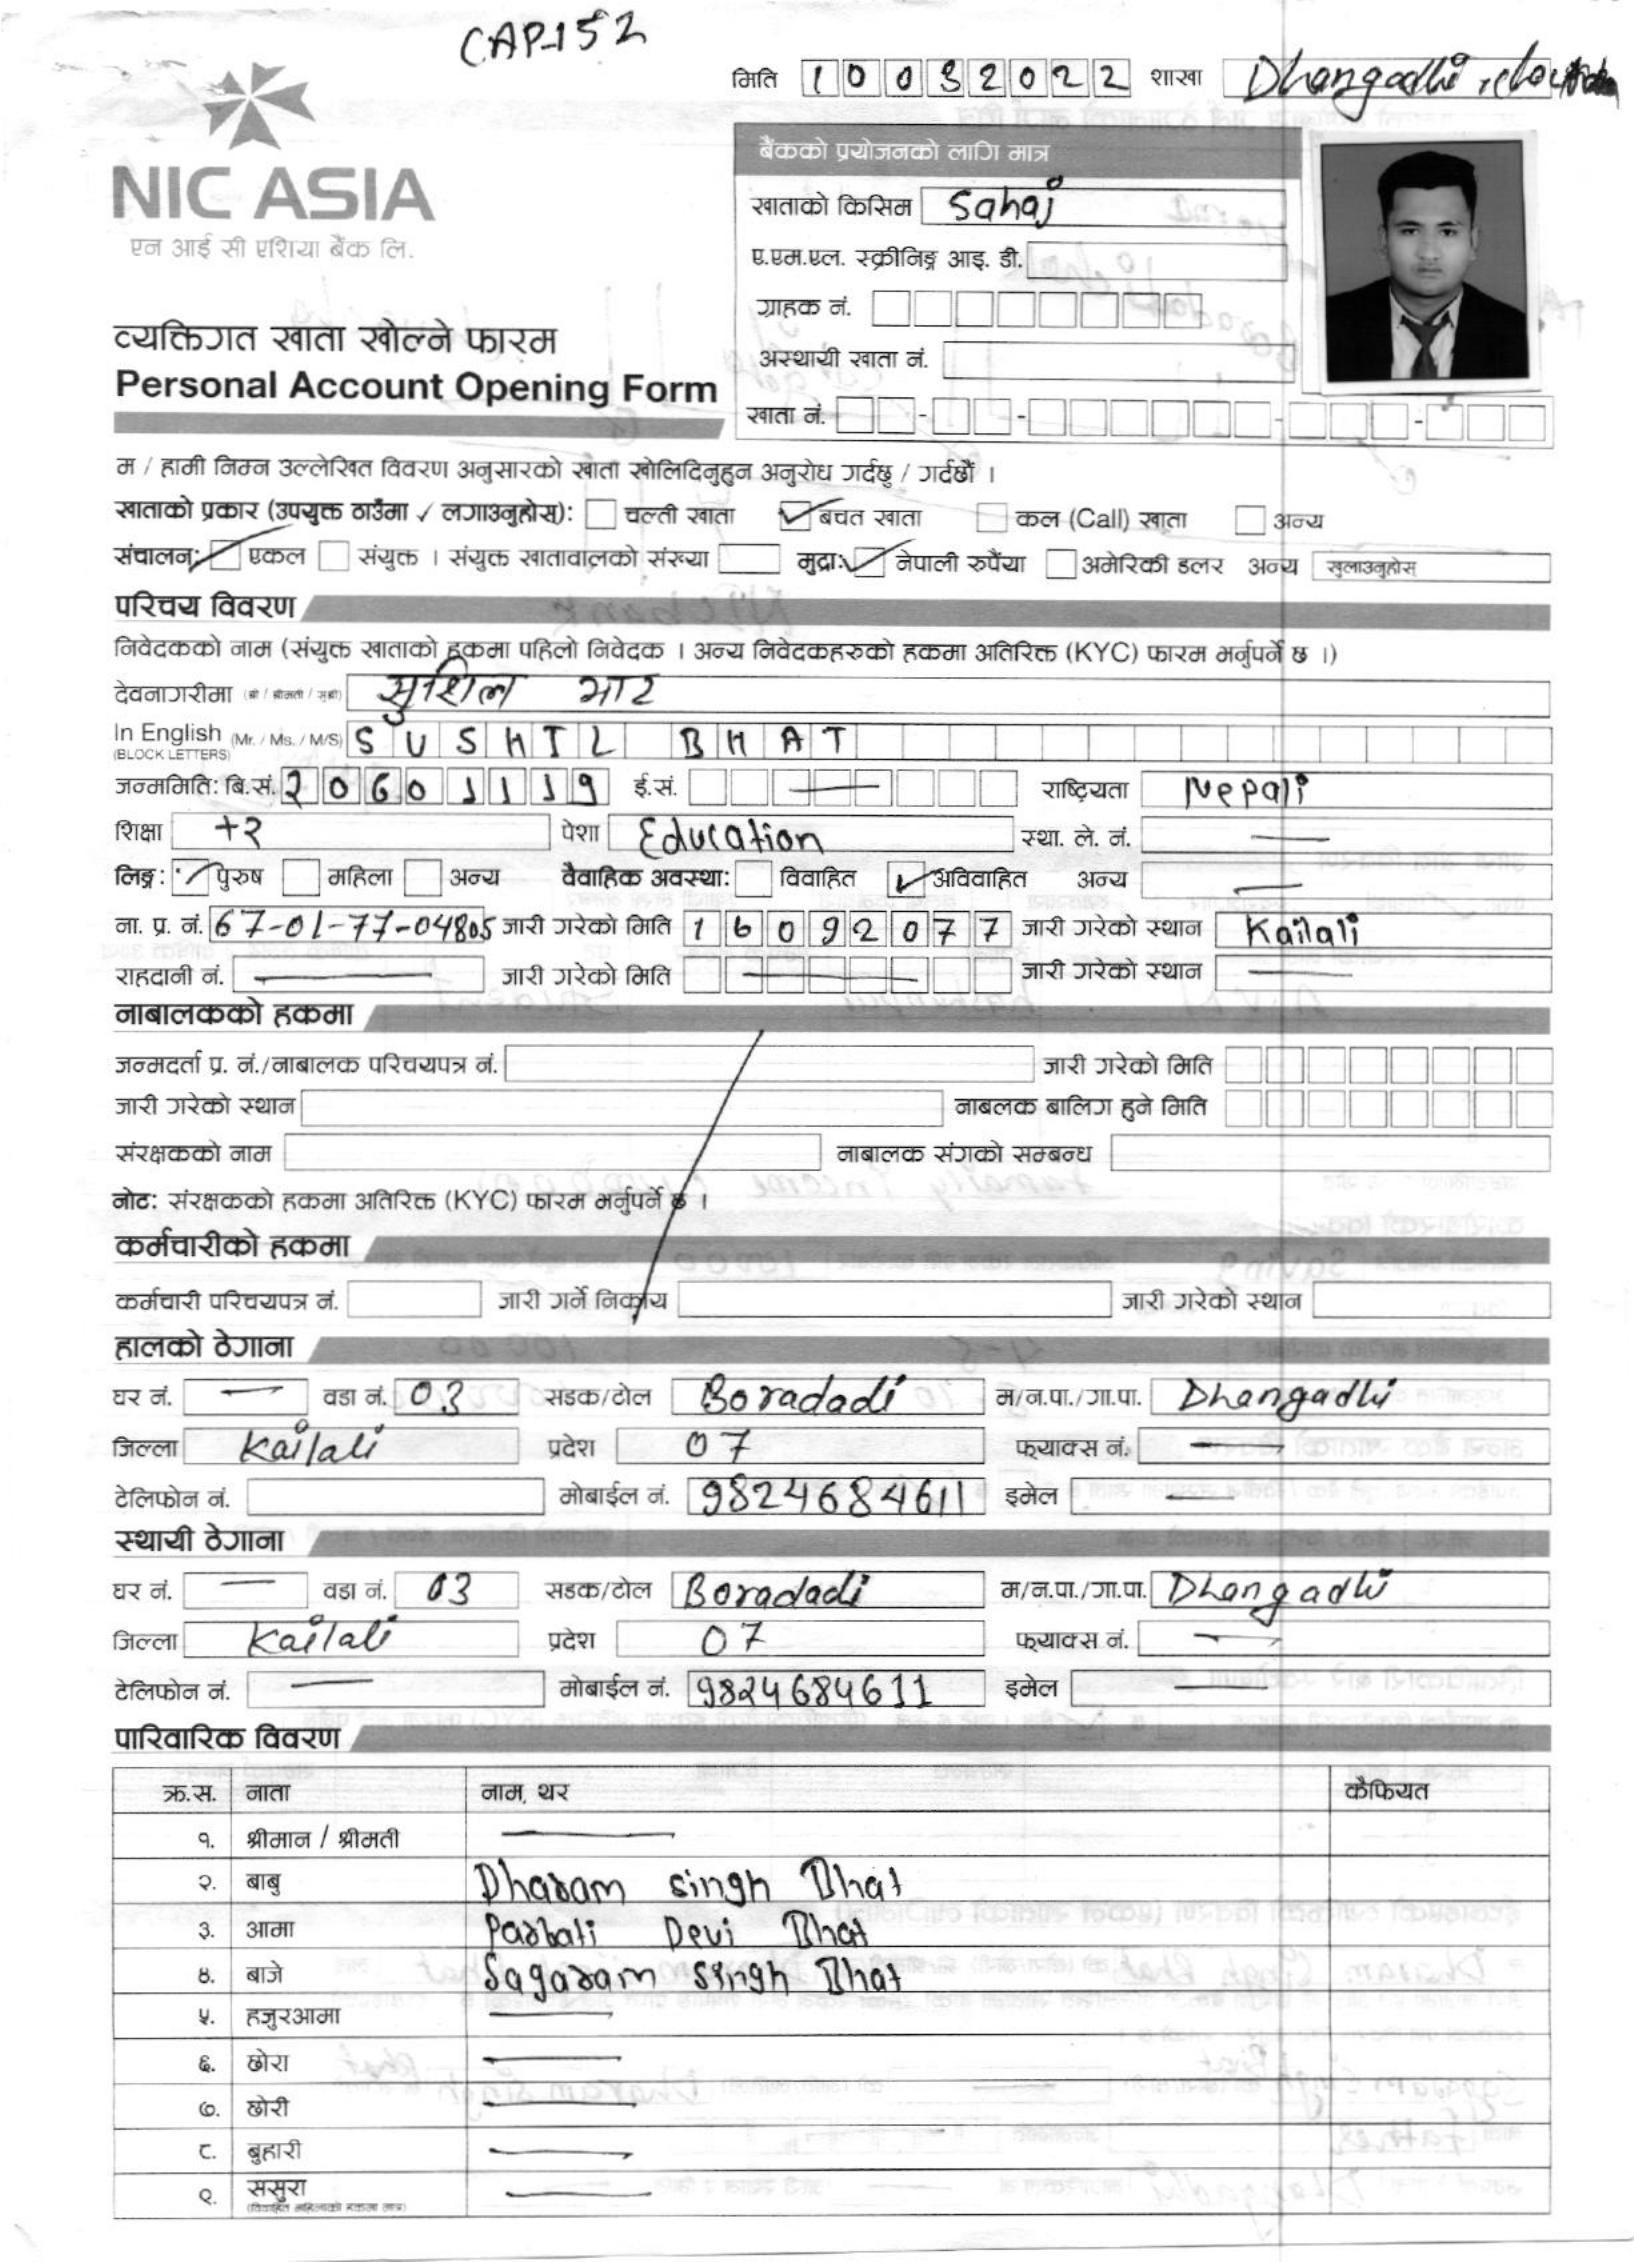 CAP-152
मिति 10032022 शाखा Dhangadhi,
NIC ASIA
एन आई सी एशिया बैंक लि.
बैंकको प्रयोजनको लागि मात्र
खाताको किसिम Sahaj
ए.एम.एल. स्क्रीनिङ्ग आइ. डी.
ग्राहक नं.
अस्थायी खाता नं.
खाता नं.
व्यक्तिगत खाता खोल्ने फारम
Personal Account Opening Form
म / हामी निम्न उल्लेखित विवरण अनुसारको खाता खोलिदिनुहुन अनुरोध गर्दछु / गर्दछौं ।
खाताको प्रकार (उपयुक्त ठाउँमा ✓ लगाउनुहोस्): चल्ती खाता ✓ बचत खाता कल (Call) खाता अन्य
संचालन: ✓ एकल संयुक्त । संयुक्त खातावालको संख्या मुद्रा: ✓ नेपाली रुपैंया अमेरिकी डलर अन्य खुलाउनुहोस्
परिचय विवरण
निवेदकको नाम (संयुक्त खाताको हकमा पहिलो निवेदक । अन्य निवेदकहरुको हकमा अतिरिक्त (KYC) फारम भर्नुपर्ने छ ।)
देवनागरीमा (श्री / श्रीमती / सुश्री) सुशिल भाट
In English (Mr. / Ms. / M/S) SUSHIL BHAT
(BLOCK LETTERS)
जन्ममिति: बि.सं. २0601119 ई.सं. — राष्ट्रियता Nepali
शिक्षा +२ पेशा Education स्था. ले. नं. —
लिङ्ग: ✓ पुरुष महिला अन्य वैवाहिक अवस्था: विवाहित ✓ अविवाहित अन्य —
ना. प्र. नं. 67-01-77-04805 जारी गरेको मिति 16092077 जारी गरेको स्थान Kailali
राहदानी नं. — जारी गरेको मिति — जारी गरेको स्थान —
नाबालकको हकमा
जन्मदर्ता प्र. नं./नाबालक परिचयपत्र नं. जारी गरेको मिति
जारी गरेको स्थान नाबलक बालिग हुने मिति
संरक्षकको नाम नाबालक संगको सम्बन्ध
नोट: संरक्षकको हकमा अतिरिक्त (KYC) फारम भर्नुपर्ने छ ।
कर्मचारीको हकमा
कर्मचारी परिचयपत्र नं. जारी गर्ने निकाय जारी गरेको स्थान
हालको ठेगाना
घर नं. — वडा नं. 03 सडक/टोल Boradadi म/न.पा./गा.पा. Dhangadhi
जिल्ला Kailali प्रदेश 07 फ्याक्स नं. —
टेलिफोन नं. मोबाईल नं. 9824684611 इमेल —
स्थायी ठेगाना
घर नं. — वडा नं. 03 सडक/टोल Boradadi म/न.पा./गा.पा. Dhangadhi
जिल्ला Kailali प्रदेश 07 फ्याक्स नं. —
टेलिफोन नं. — मोबाईल नं. 9824684611 इमेल —
पारिवारिक विवरण
क्र.स. नाता नाम, थर कैफियत
१. श्रीमान / श्रीमती —
२. बाबु Dharam singh Bhat
३. आमा Parbati Devi Bhat
४. बाजे Sagaram Singh Bhat
५. हजुरआमा —
६. छोरा —
७. छोरी —
८. बुहारी —
९. ससुरा —
(विवाहित महिलाको हकमा मात्र)